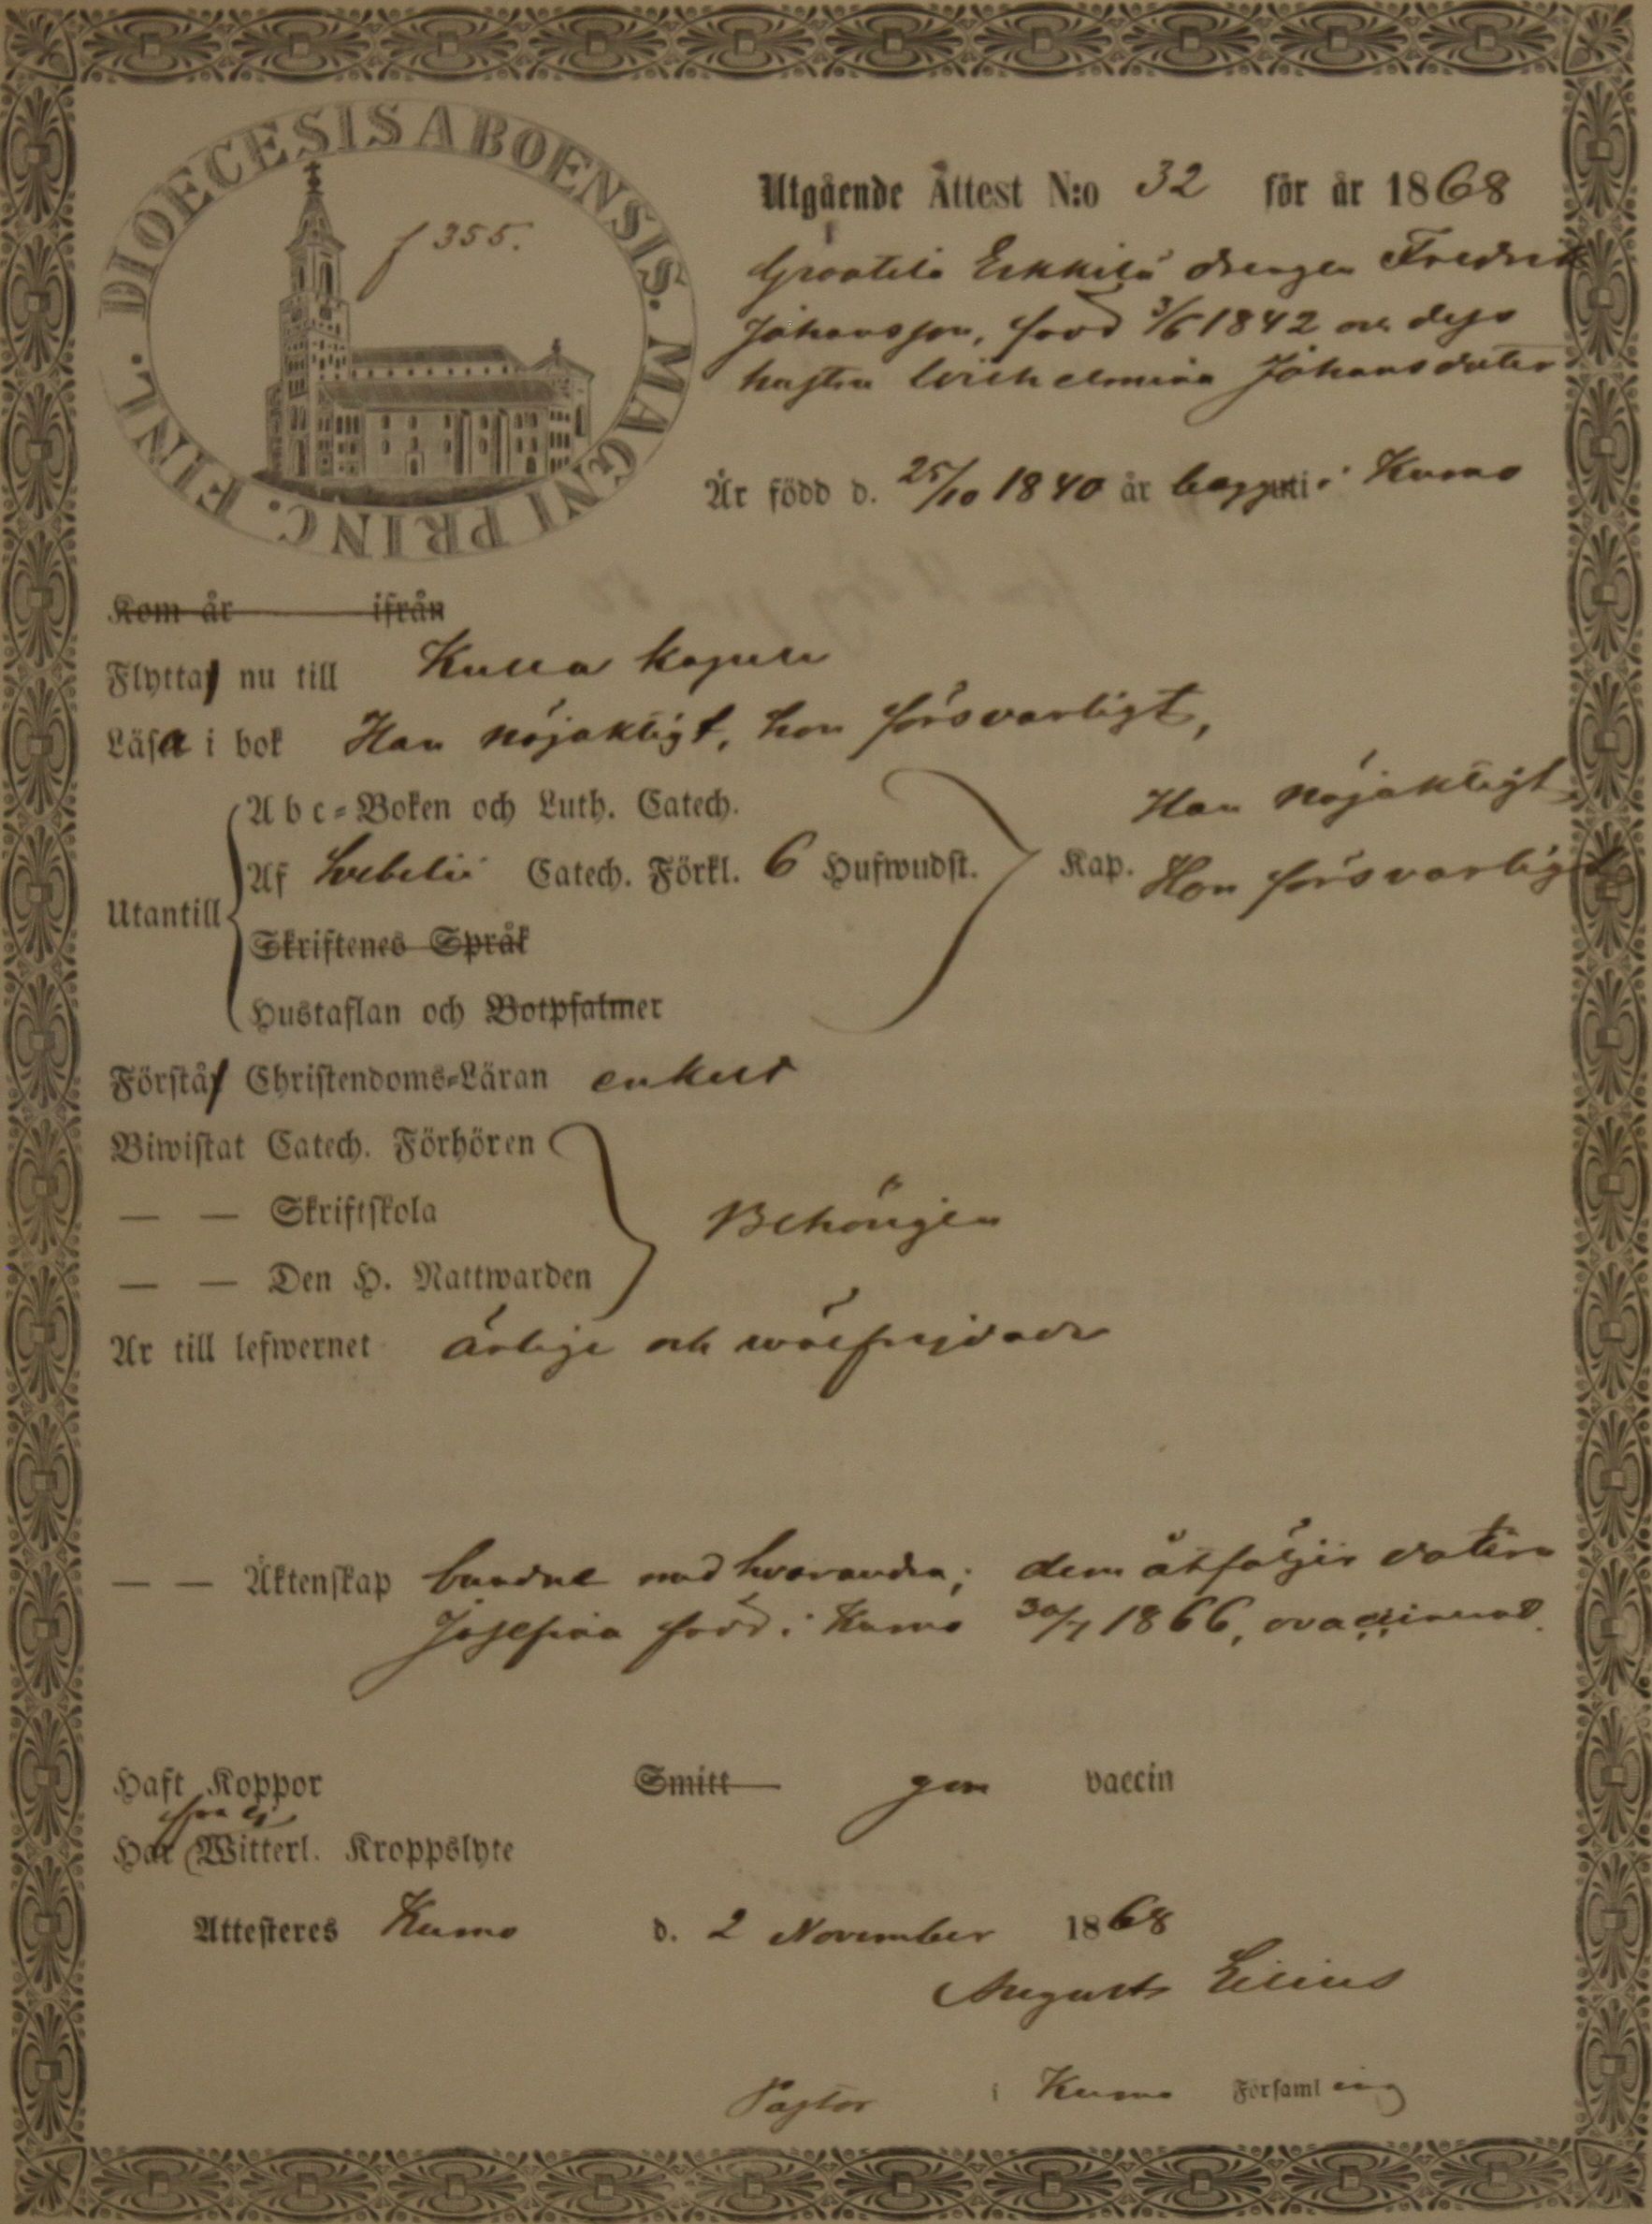 DIOECESIS ABOENSIS. MAGNI PRINC. FINL.
f 355.
Utgående Attest N:o 32 för år 1868
Eskkilä drengen Fredrik
Johansson, född 3/6 1842 och dess
hustru Wilhelmina Johansdotter
Är född d. 25/10 1840 år begge i Kumo
Kom år ifrån
Flytta nu till Kulla kapell
Läsa i bok Han nöjaktigt, hon försvarligt,
Utantill
Abc-Boken och Luth. Catech.
Af Svebelii Catech. Förkl. 6 Hufwudst.
Skriftenes Språk
Hustaflan och Botpsalmer
Kap. Han nöjaktigt
Hon försvarligt
Förstå Christendoms-Läran enkelt
Biwistat Catech. Förhören
— — Skriftskola
— — Den H. Nattwarden
Behörigen
Är till lefwernet ärlige och wälfrejdade
— — Äktenskap bundne med hvarandra; dem åtföljer dottern
Josefina född i Kumo 30/7 1866, ovaccinerad.
Haft Koppor Smitt gen vaccin
Har Witterl. Kroppslyte
Attesteres Kumo d. 2 November 1868
August Lilius
Pastor i Kumo Församling